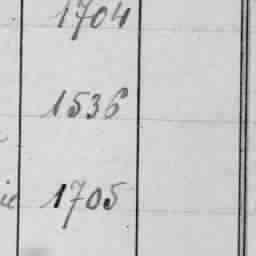 1704
1536
ie 1705